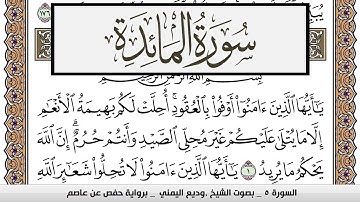 سُورَةُ المَائِدَةِ
بِسْمِ اللَّهِ الرَّحْمَٰنِ الرَّحِيمِ
يَٰٓأَيُّهَا ٱلَّذِينَ ءَامَنُوٓا۟ أَوْفُوا۟ بِٱلْعُقُودِ ۚ أُحِلَّتْ لَكُم بَهِيمَةُ ٱلْأَنْعَٰمِ
إِلَّا مَا يُتْلَىٰ عَلَيْكُمْ غَيْرَ مُحِلِّى ٱلصَّيْدِ وَأَنتُمْ حُرُمٌ ۗ إِنَّ ٱللَّهَ
يَحْكُمُ مَا يُرِيدُ ١ يَٰٓأَيُّهَا ٱلَّذِينَ ءَامَنُوا۟ لَا تُحِلُّوا۟ شَعَٰٓئِرَ ٱللَّهِ
السورة ٥ _ بصوت الشيخ .وديع اليمني _ برواية حفص عن عاصم